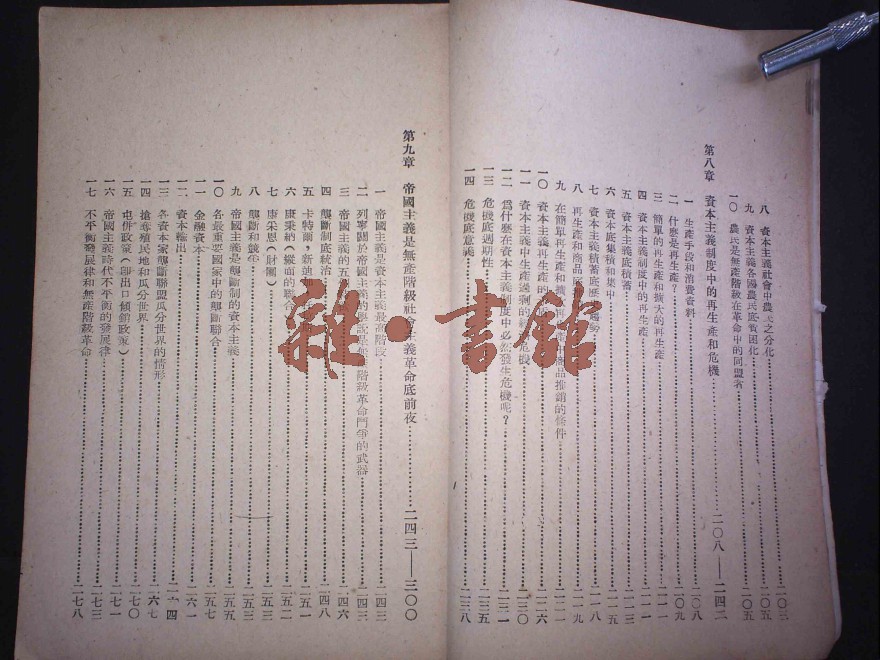 八 資本主義社會中農民之分化 二〇三
九 資本主義各國農民底貧困化 二〇五
一〇 農民是無產階級在革命中的同盟者 二〇五
第八章 資本主義制度中的再生產和危機 二〇八——二四二
一 生產手段和消費資料 二〇八
二 什麼是再生產? 二〇九
三 簡單的再生產和擴大的再生產 二一一
四 資本主義制度中的再生產 二一一
五 資本主義底積蓄 二一三
六 資本底集積和集中 二一五
七 資本主義積蓄底歷 勢 二一八
八 再生產和商品 二一九
九 在簡單再生產和擴 商品推銷的條件
一〇 資本主義再生產的 二二六
一一 資本主義中生產過剩的 危機 二三〇
一二 爲什麼在資本主義制度中必然發生危機呢? 二三一
一三 危機底週期性 二三五
一四 危機底意義 二三八
第九章 帝國主義是無產階級社會主義革命底前夜 二四三——三〇〇
一 帝國主義是資本主義最高階段 二四三
二 列寧關於帝國主義 學說是無 階級革命鬥爭的武器 二四三
三 帝國主義的五 二四六
四 壟斷制底統治 二四八
五 卡特爾,新迪加 二五一
六 康采納(縱面的聯合) 二五二
七 康采恩(財閥) 二五三
八 壟斷和競爭 二五三
九 帝國主義是壟斷制的資本主義 二五五
一〇 各最重要國家中的壟斷聯合 二五七
一一 金融資本 二六一
一二 資本輸出 二六四
一三 各資本家壟斷聯盟瓜分世界的情形
一四 搶奪殖民地和瓜分世界 二六七
一五 屯併政策(卽出口傾銷政策) 二七〇
一六 帝國主義時代不平衡的發展律 二七一
一七 不平衡發展律和無產階級革命 二七八
雜·書館